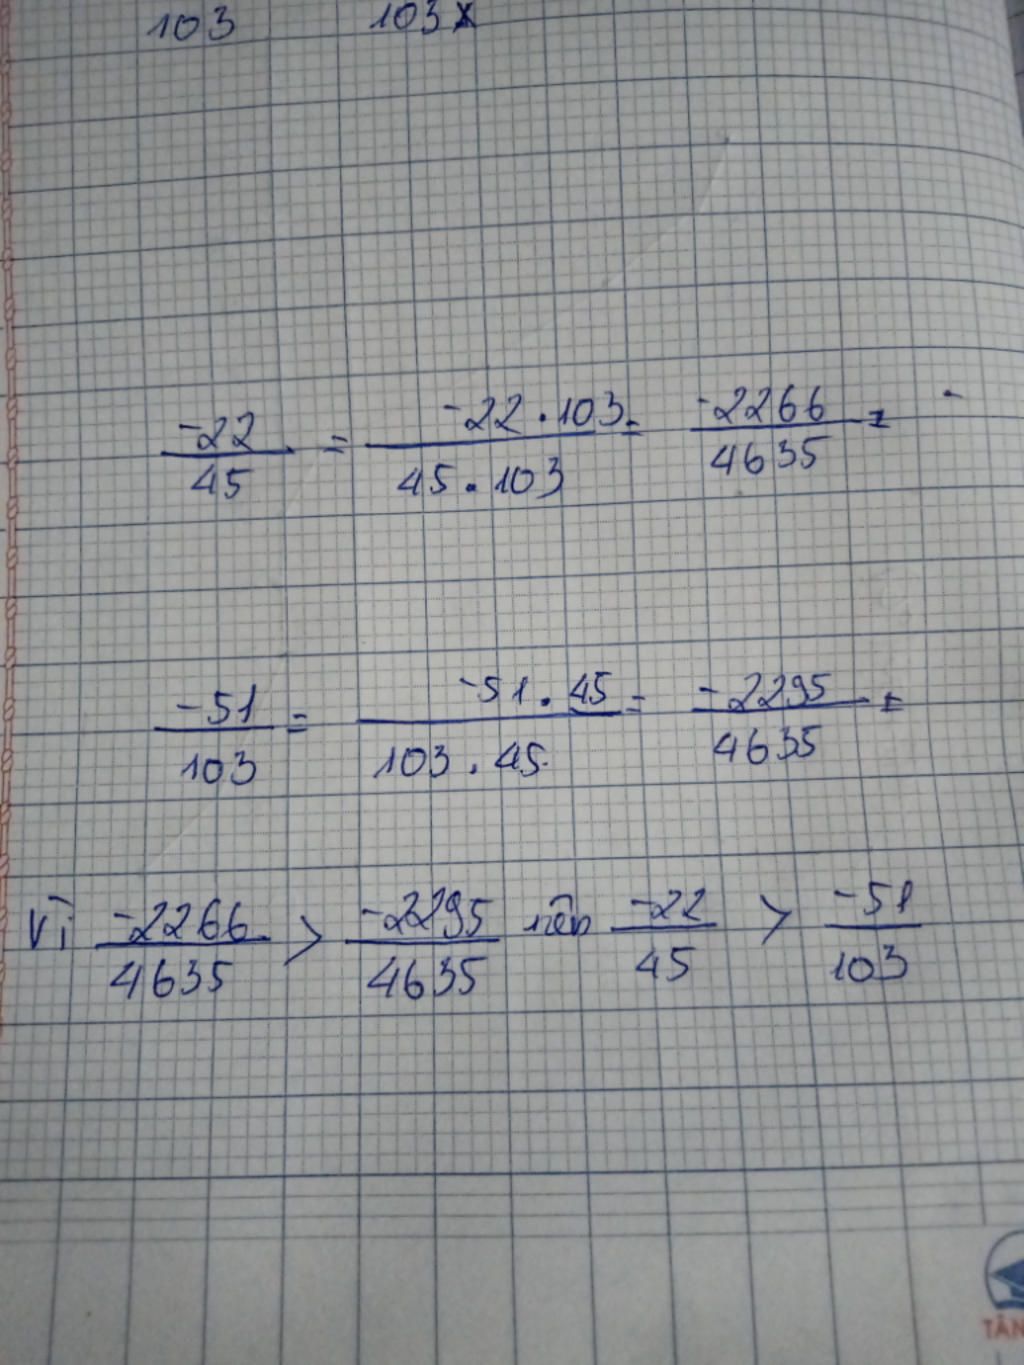 103 103x
-22/45 = -22.103/45.103 = -2266/4635 =
-51/103 = -51.45/103.45 = -2295/4635 =
Vì -2266/4635 > -2295/4635 nên -22/45 > -51/103
TÂN